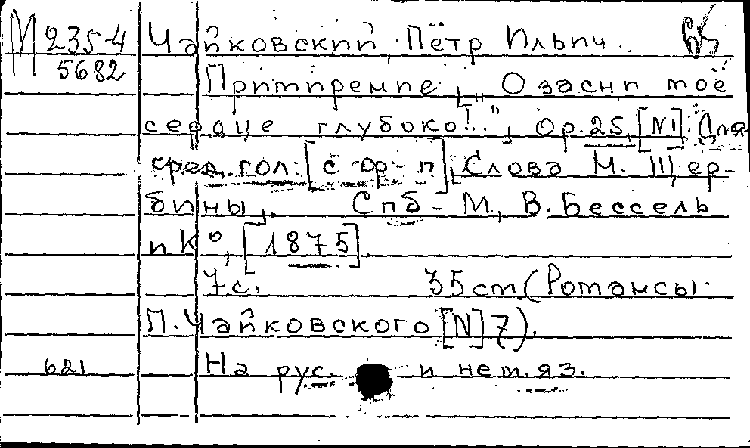 М 235-4 Чайковский Пётр Ильич. 65
5682 Примирение [„О засни моё
сердце глубоко!.."], Op. 25, [N1] Для
сред. гол. [с ор-п], Слова М. Щер-
бины]. Спб - М., В. Бессель
и К°, [1875].
7 с. 35 cm (Романсы
П. Чайковского [N] 7).
621 На рус. и нем. яз.